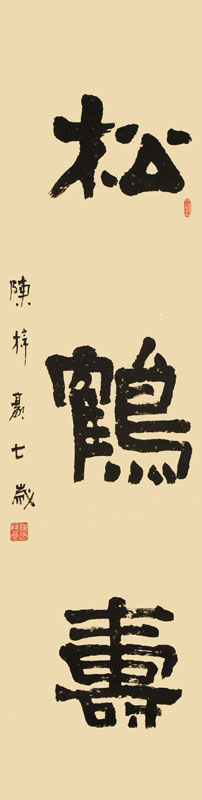 松鶴壽
陳梓豪七歲